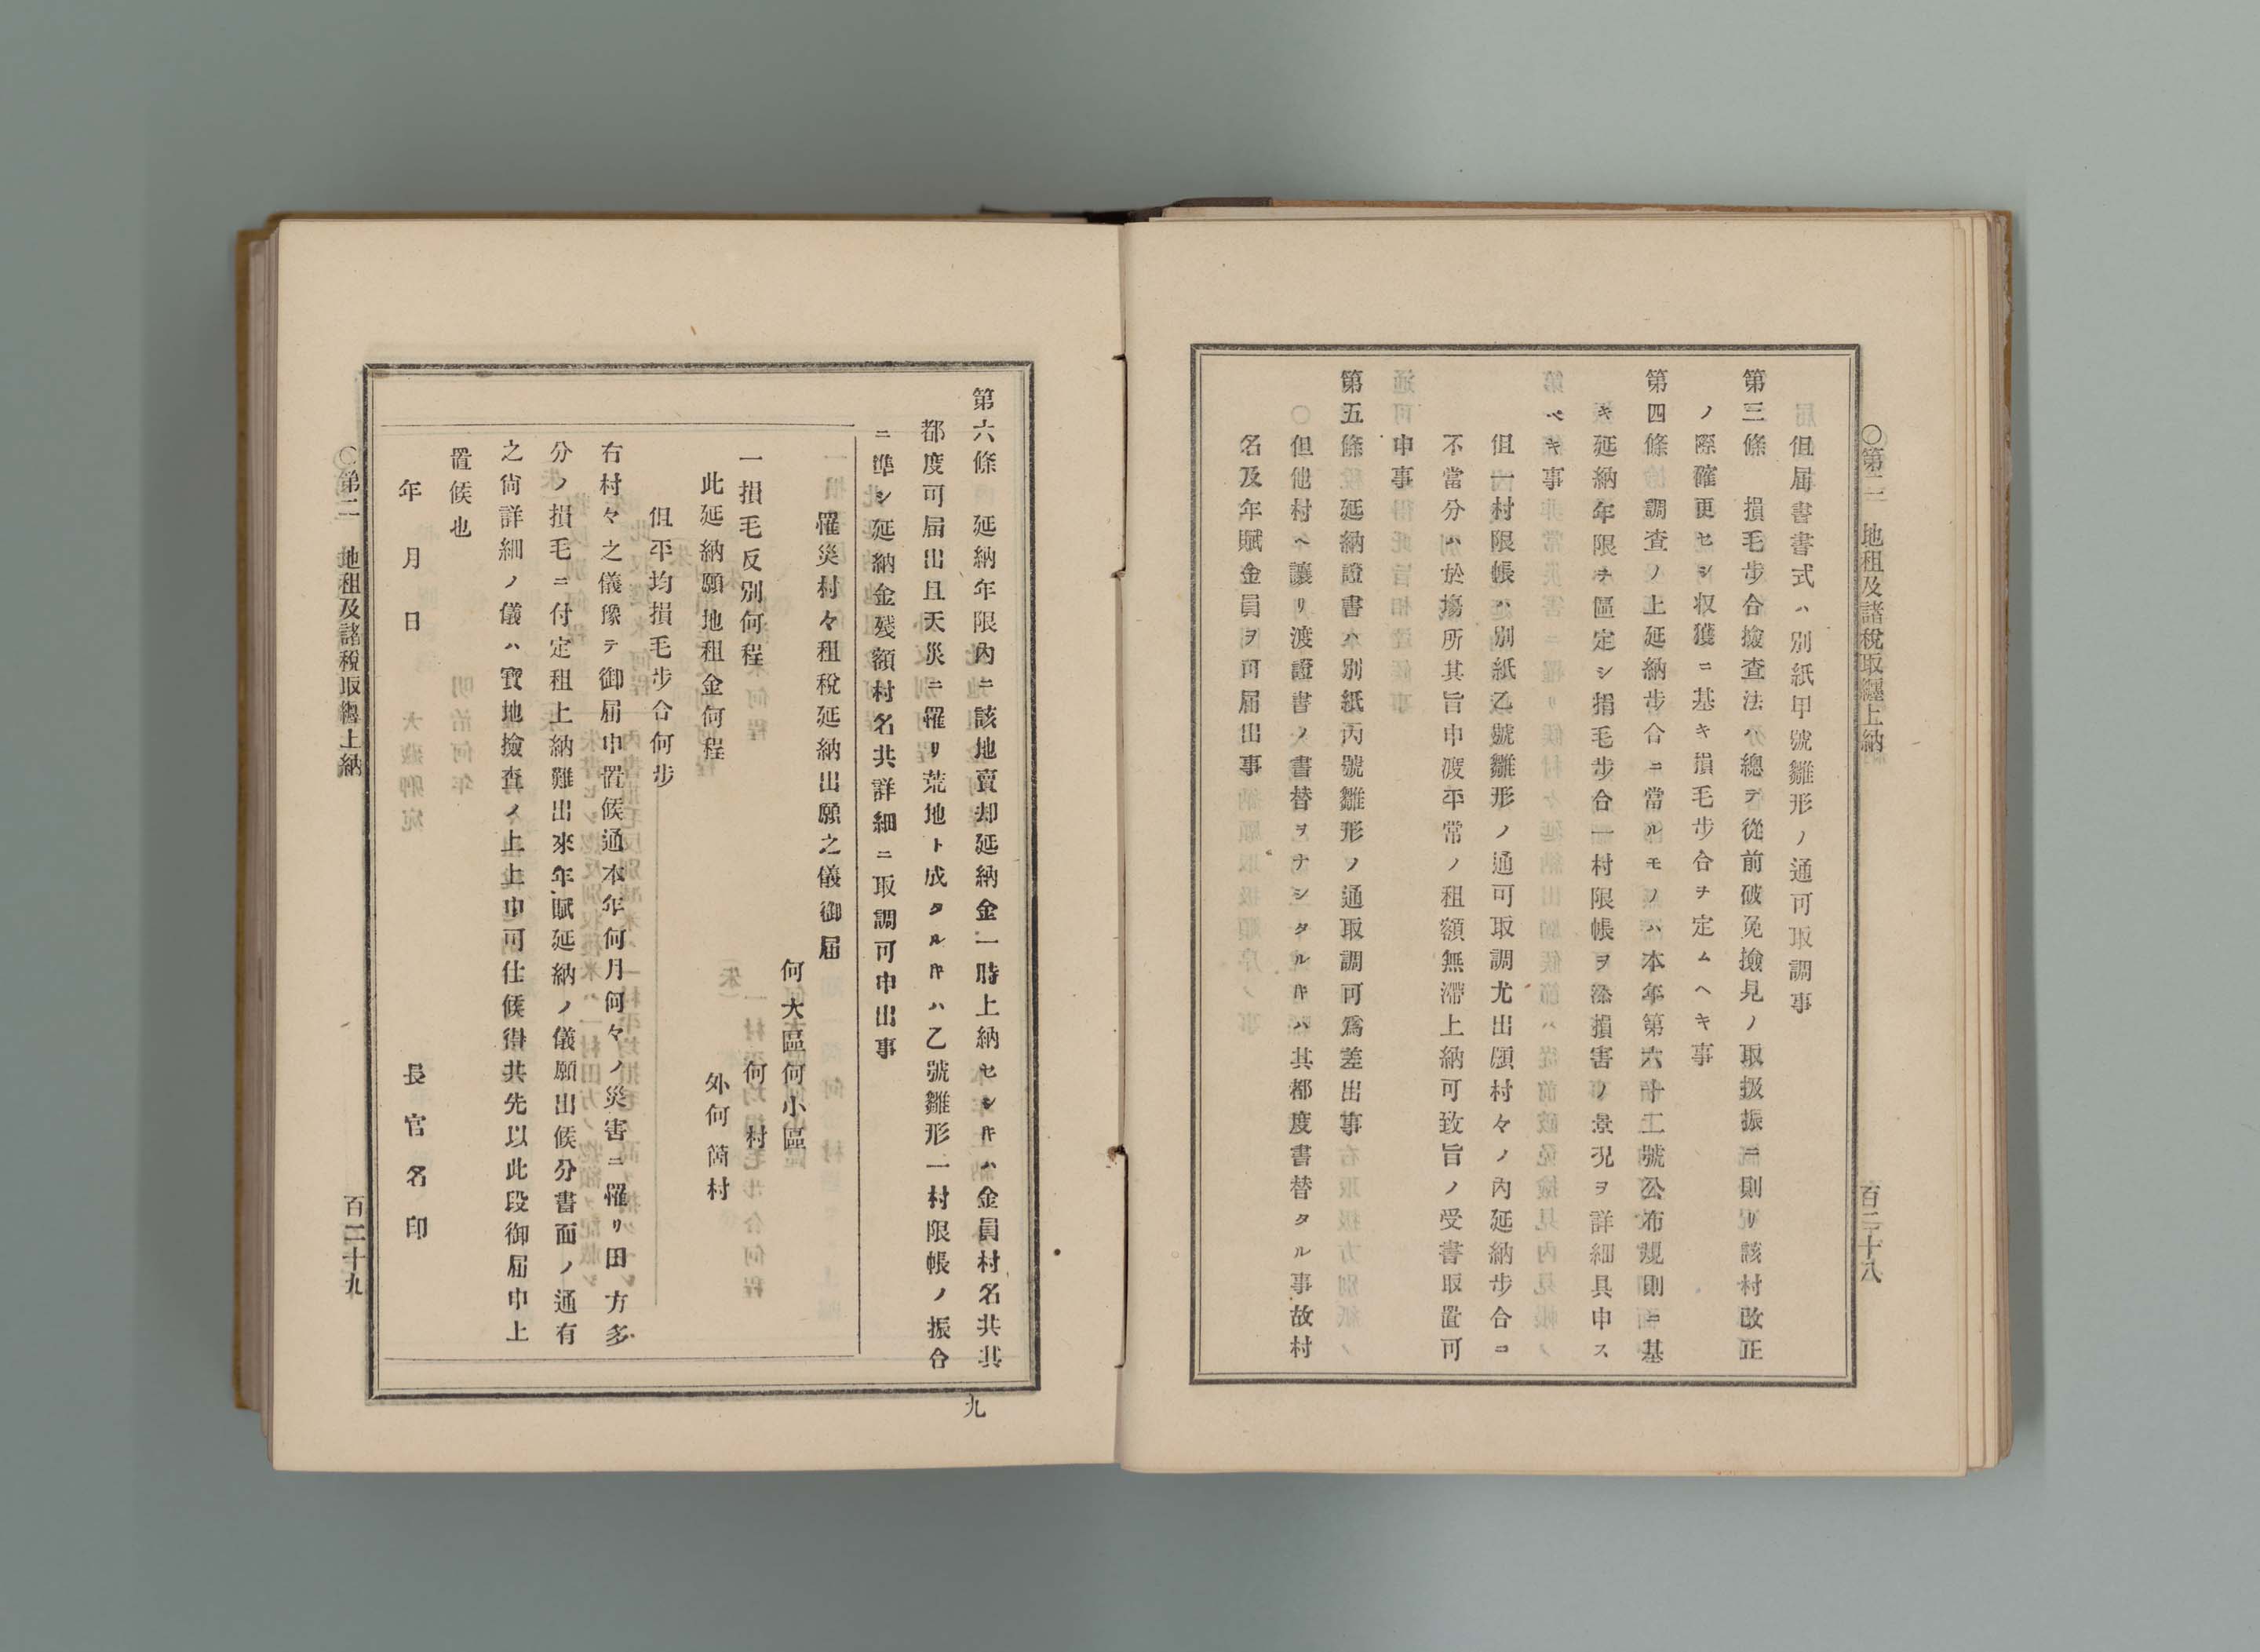 ○第二　地租及諸税取纒上納
百二十八
但屆書書式ハ別紙甲號雛形ノ通可取調事
第三條　損毛步合撿査法ハ總テ從前破免撿見ノ取扱振ニ則リ該村改正
ノ際確更セシ収獲ニ基キ損毛步合ヲ定ムヘキ事
第四條　調査ノ上延納步合ニ當ルモノハ本年第六十二號公布規則ニ基
キ延納年限ヲ區定シ損毛步合一村限帳ヲ添損害ノ景況ヲ詳細具申ス
ベキ事
但一村限帳ハ別紙乙號雛形ノ通可取調尤出願村々ノ內延納步合ニ
不當分ハ於塲所其旨申渡平常ノ租額無滯上納可致旨ノ受書取置可
申事
第五條　延納證書ハ別紙丙號雛形ノ通取調可爲差出事
但他村ヘ讓リ渡證書ノ書替ヲナシタルキハ其都度書替タル事故村
名及年賦金員ヲ可屆出事
第六條　延納年限內ニ該地賣却延納金一時上納セシキハ金員村名共其
都度可屆出且天災ニ罹リ荒地ト成タルキハ乙號雛形一村限帳ノ振合
ニ準シ延納金殘額村名共詳細ニ取調可申出事
罹災村々租稅延納出願之儀御屆
何大區何小區
何村
外何箇村
一損毛反別何程
此延納願地租金何程
但平均損毛步合何步
右村々之儀豫テ御屆申置候通本年何月何々ノ災害ニ罹リ田方多
分ノ損毛ニ付定租上納難出來年賦延納ノ儀願出候分書面ノ通有
之尙詳細ノ儀ハ實地撿査ノ上上申可仕候得共先以此段御屆申上
置候也
年　月　日
長官名印
○第二　地租及諸税取纒上納
百二十九
九